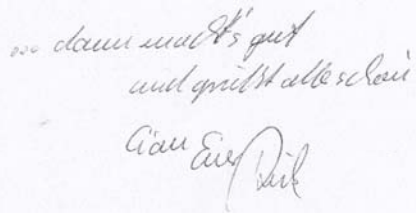 ... dann macht's gut
und grüßt alle schön
Ciao Euer Dirk